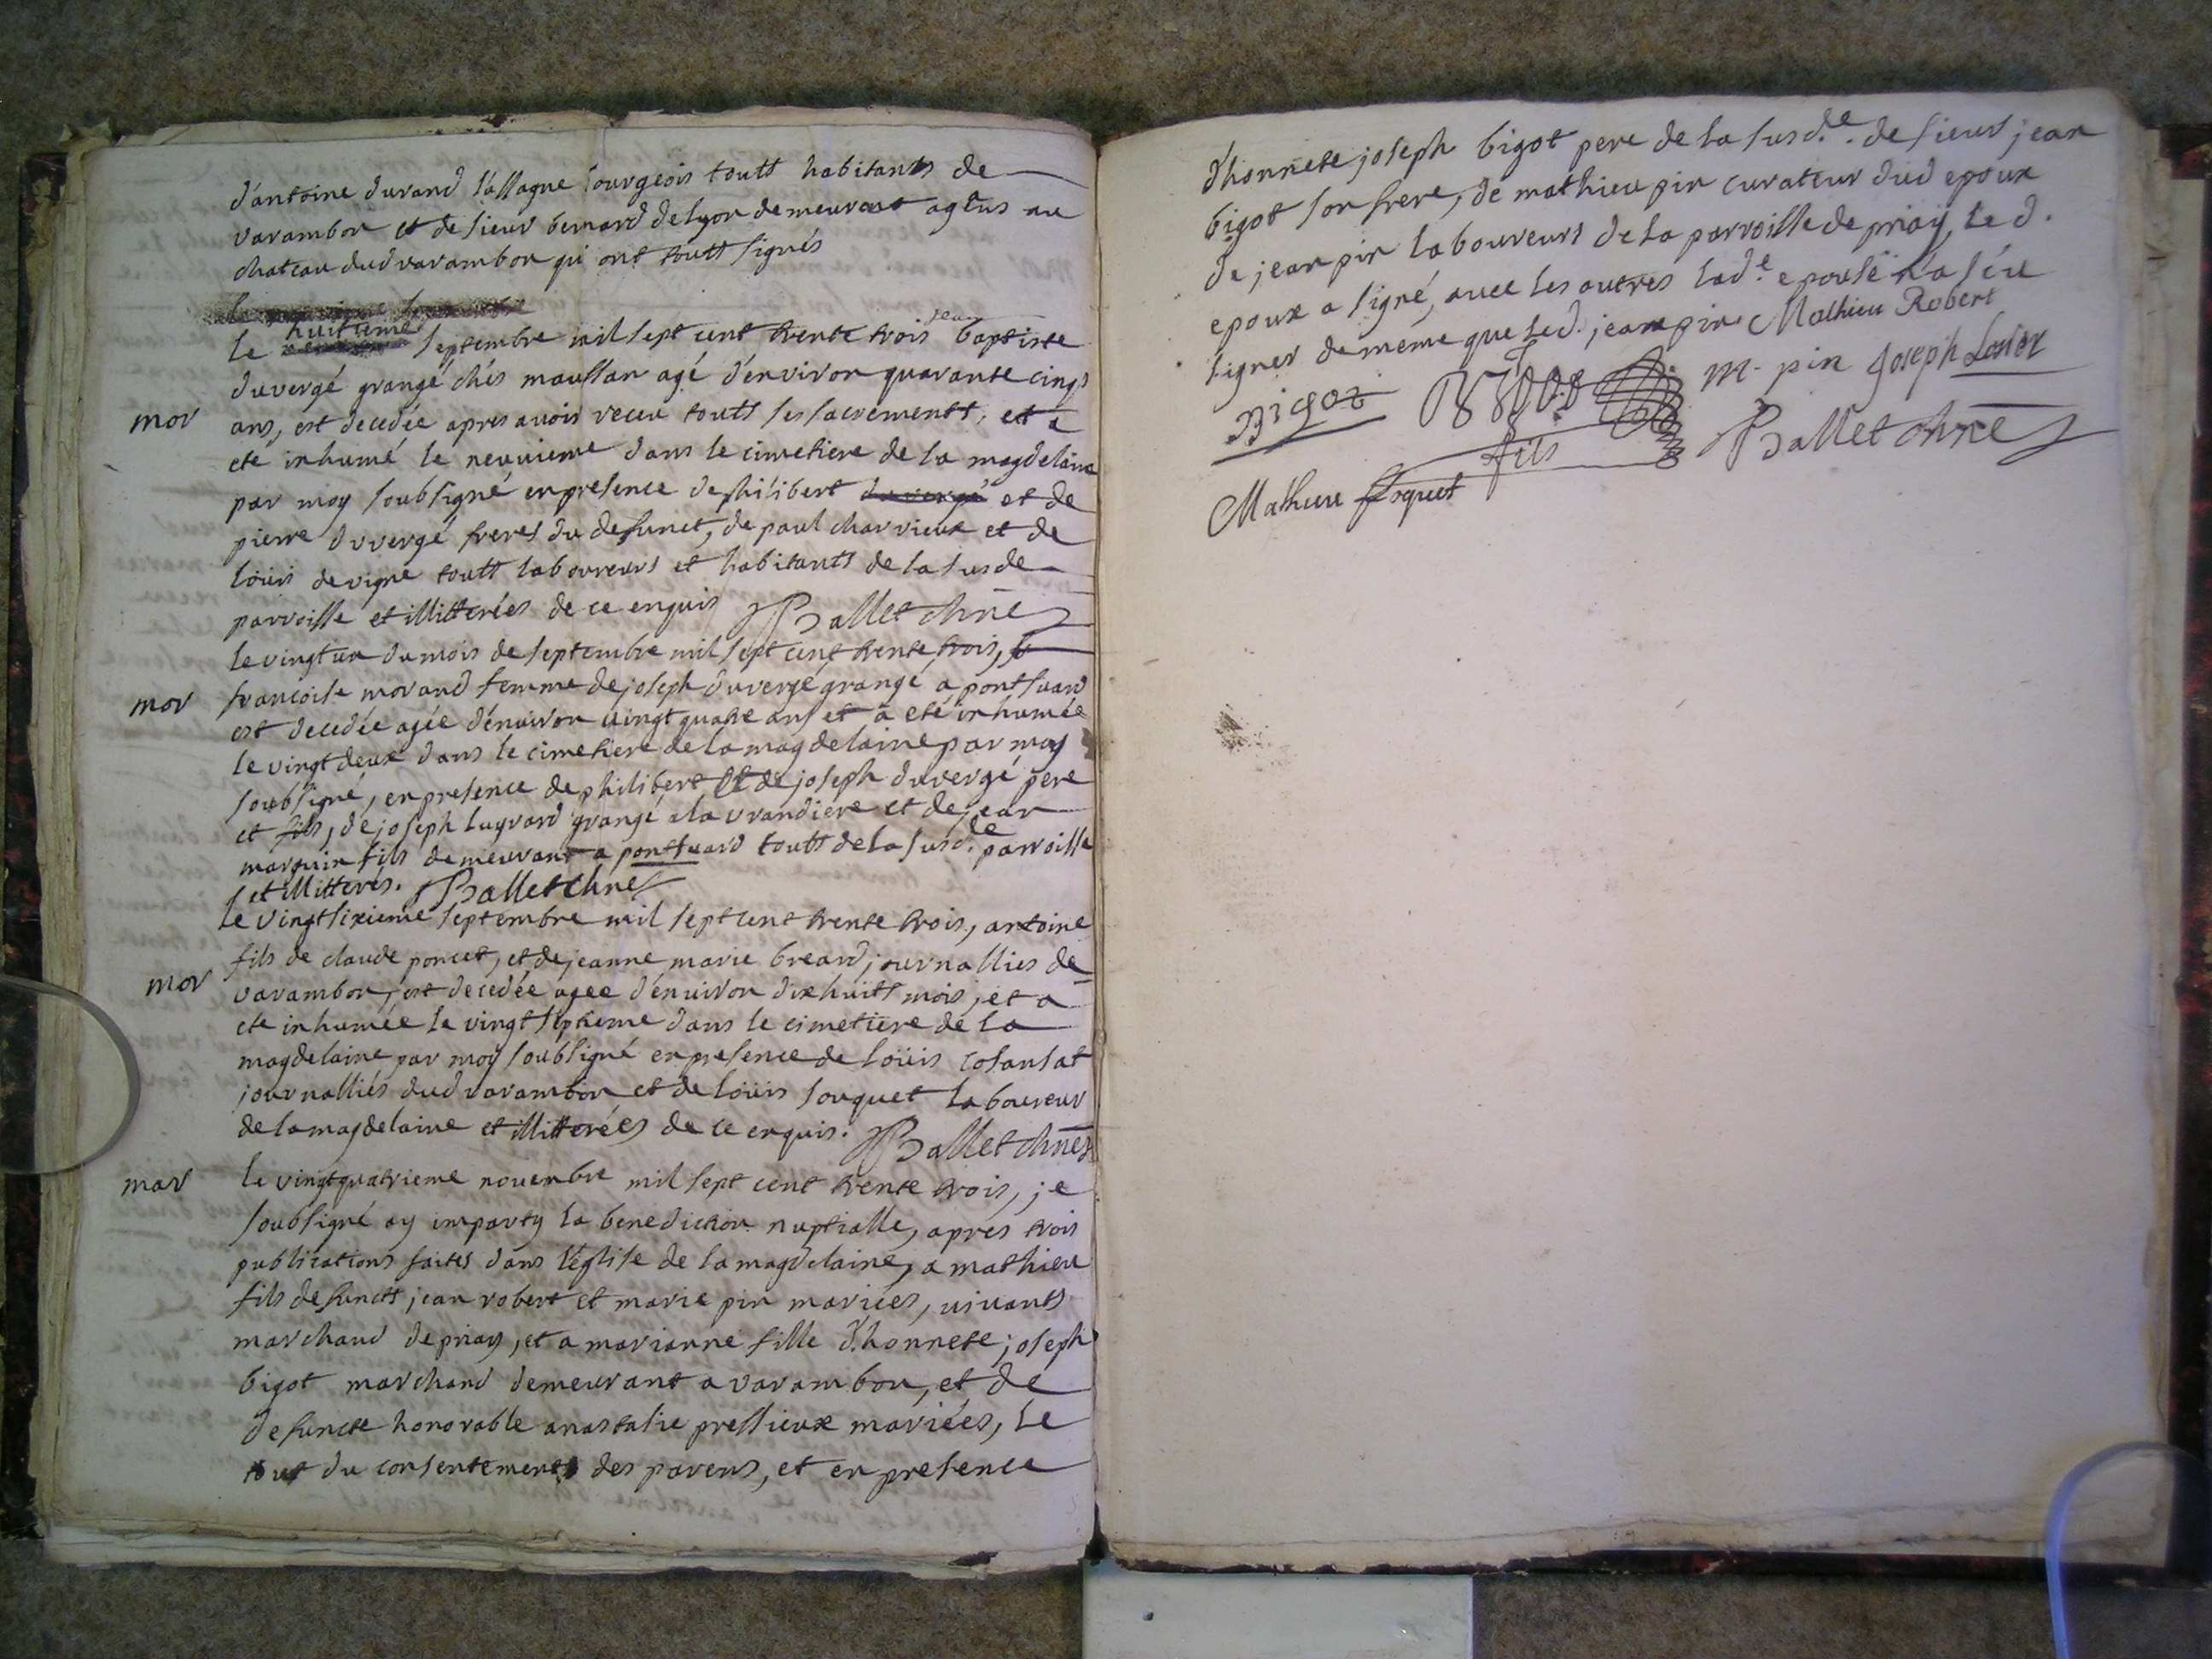 d'antoine durand l'allagne bourgeois toutt habitants de
varambon et de sieur bernard delyon demeurant agens au
chateau dud varambon qui ont toutt signés
le huitieme septembre mil sept cent trente trois jean baptiste
duvergé grangé chés maussan agé d'environ quarante cinqs
mor
ans, est decedée apres avoir receu toutt ses sacrementt, et a
eté inhumé le neuvieme dans le cimetiere de la magdelaine
par moy soubsigné en presence de philibert duvergé et de
pierre duvergé freres du defunct, de paul charvieux et de
loüis devigne toutt laboureurs et habitants de la susde
parroisse et illitterées de ce enquis Ballet chne
le vingt un du mois de septembre mil sept cent trente trois,
mor
francoise morand femme de joseph duvergé grangé a pont suard
est decedée agée d'environ vingt quatre ans et a eté inhumée
le vingt deux dans le cimetiere de la magdelaine par moy
soubsigné, en presence de philibert et de joseph duvergé pere
et fils, de joseph lugrard grangé a la vrandiere et de jean
marguin fils demeurant a pont suard toutt de la susd.de parroisse
et illitterés. Ballet chne
le vingt sixieme septembre mil sept cent trente trois, antoine
fils de claude poncet, et de jeanne marie breard journalliés de
mor
varambon, est decedée agee d'environ dix huitt mois, et a
ete inhumée le vingt septieme dans le cimetiere de la
magdelaine par moy soubsigné en presence de loüis cosansat
journalliés dud varambon et de loüis souquet laboureur
de la magdelaine et illitterées de ce enquis. Ballet chne
mar
le vingt quatrieme novembre mil sept cent trente trois, je
soubsigné ay imparty la benediction nuptialle, apres trois
publications faites dans l'eglise de la magdelaine, a mathieu
fils defunctt jean robert et marie pin mariées, vivants
marchand de priay, et a marianne fille d'honnete joseph
bigot marchand demeurant a varambon, et de
defuncte honorable anastasie pressieux mariées, le
tout du consentement des parens, et en presence
d'honnete joseph bigot pere de la susd.e de sieur jean
bigot son frere, de mathieu pin curateur dud epoux
de jean pin laboureurs de la parroisse de priay, le d.
epoux a signé, avec les autres lad.e epouse n'a sçu
signer de méme que led. jean pin. Mathieu Robert
Bigot
Bigot
fils
m. pin
Joseph
Mathieu
Ballet chne